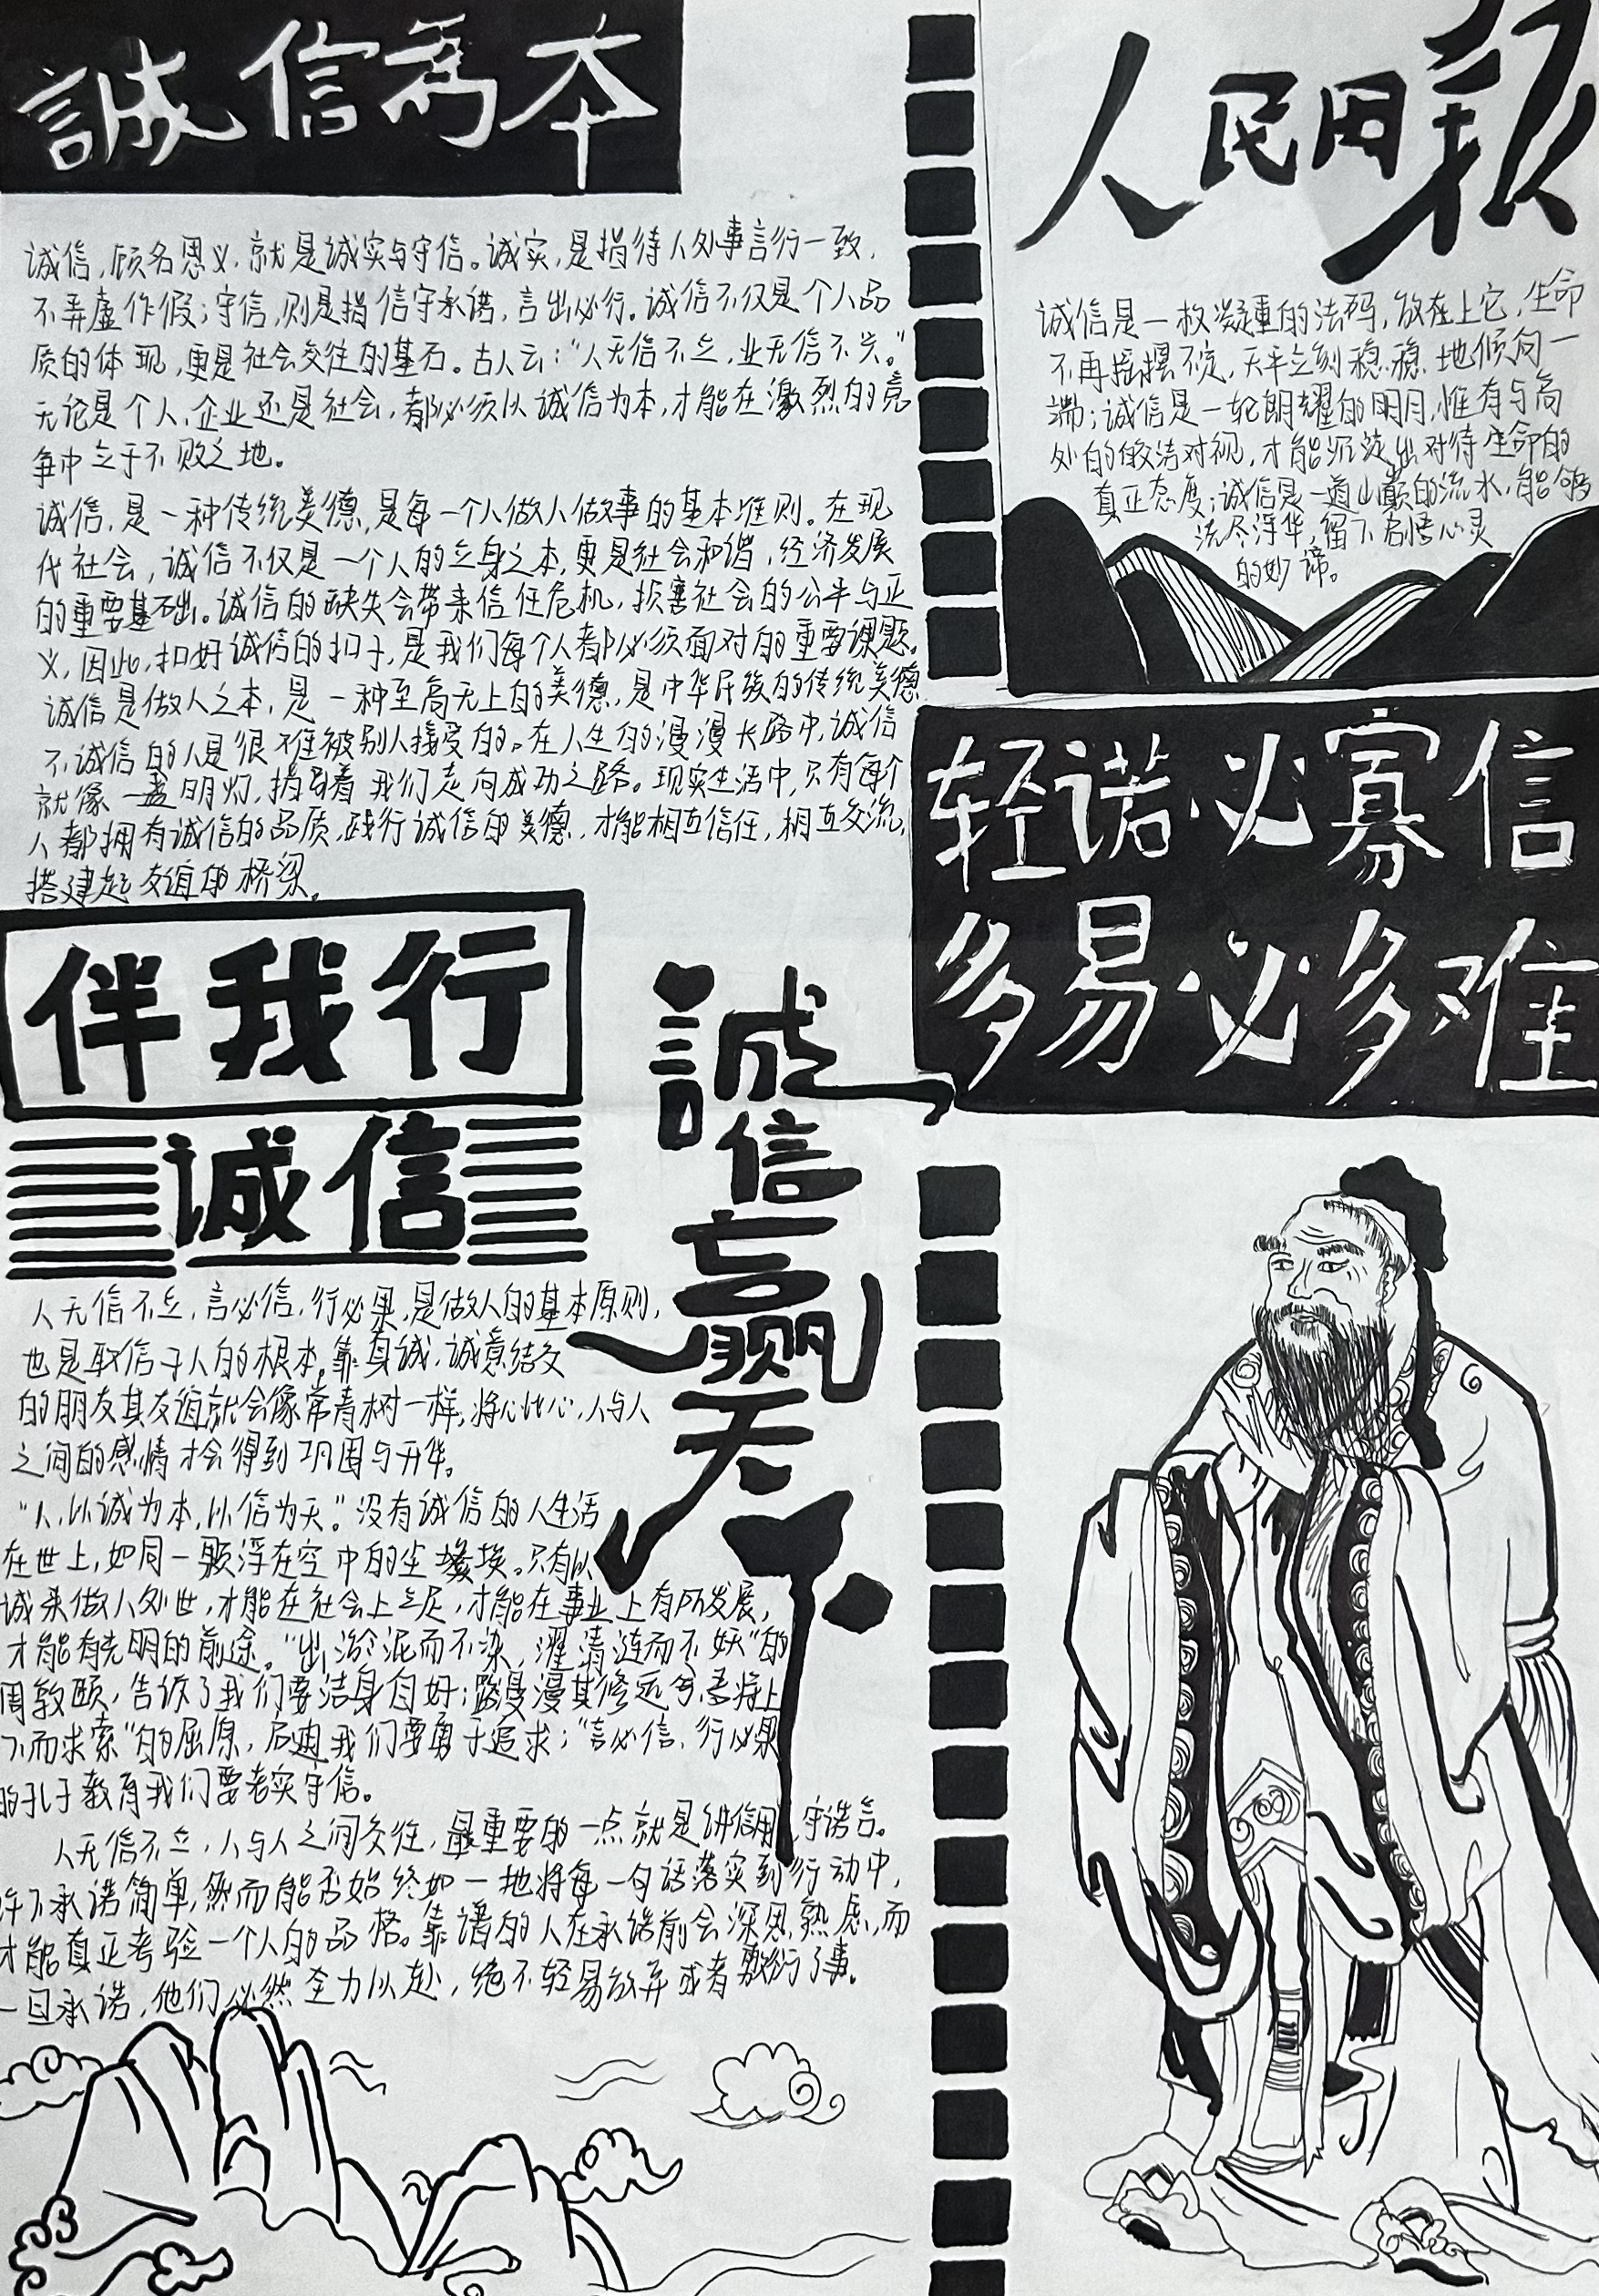 誠信為本
诚信,顾名思义,就是诚实与守信。诚实,是指待人处事言行一致,
不弄虚作假;守信,则是指信守承诺,言出必行。诚信不仅是个人品
质的体现,更是社会交往的基石。古人云:“人无信不立,业无信不兴。”
无论是个人,企业还是社会,都必须从诚信为本,才能在激烈的竞
争中立于不败之地。
诚信,是一种传统美德,是每一个人做人做事的基本准则。在现
代社会,诚信不仅是一个人的立身之本,更是社会和谐,经济发展
的重要基础。诚信的缺失会带来信任危机,损害社会的公平与正
义,因此,扣好诚信的扣子,是我们每个人都必须面对的重要课题。
诚信是做人之本,是一种至高无上的美德,是中华民族的传统美德
不诚信的人是很难被别人接受的。在人生的漫漫长路中,诚信
就像一盏明灯,指引着我们走向成功之路。现实生活中,只有每个
人都拥有诚信的品质,践行诚信的美德,才能相互信任,相互交流,
搭建起友谊的桥梁。
伴我行
诚信
人无信不立,言必信,行必果,是做人的基本原则,
也是取信于人的根本。靠真诚,诚意结交
的朋友其友谊就会像常青树一样,将心比心,人与人
之间的感情才会得到巩固与升华。
“人,以诚为本,以信为天。”没有诚信的人生活
在世上,如同一颗浮在空中的尘埃。只有以
诚来做人处世,才能在社会上立足,才能在事业上有所发展,
才能有光明的前途。“出淤泥而不染,濯清涟而不妖”的
周敦颐,告诉了我们要洁身自好;路漫漫其修远兮,吾将上
下而求索”的屈原,启迪我们要勇于追求;“言必信,行必果
的孔子教育我们要老实守信。
人无信不立,人与人之间交往,最重要的一点就是讲信用,守诺言。
许下承诺简单,然而能否始终如一地将每一句话落实到行动中,
才能真正考验一个人的品格。靠谱的人在承诺前会深思熟虑,而
一旦承诺,他们必然全力以赴,绝不轻易放弃或者敷衍了事。
誠
信
赢
天
下
人民日报
诚信是一枚凝重的法码,放在上它,生命
不再摇摆不定,天平立刻稳稳地倾向一
端;诚信是一轮朗耀的明月,惟有与高
处的皎洁对视,才能沉淀出对待生命的
真正态度;诚信是一道山巅的流水,能够
洗尽浮华,留下启悟心灵
的妙谛。
轻诺必寡信
多易必多难